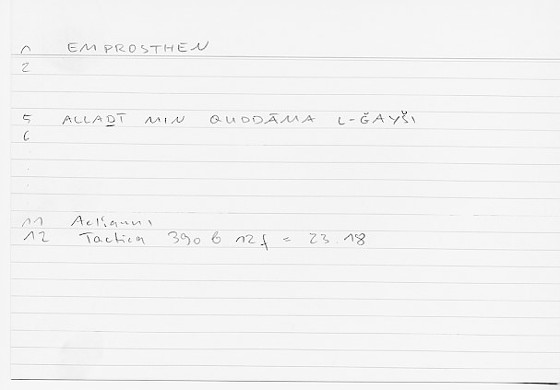 1 EMPROSTHEN
2
5 ALLAḎĪ MIN QUDDĀMA L-ǦAYŠI
6
11 Aelianus
12 Tactica 390 b 12 f = 23.18